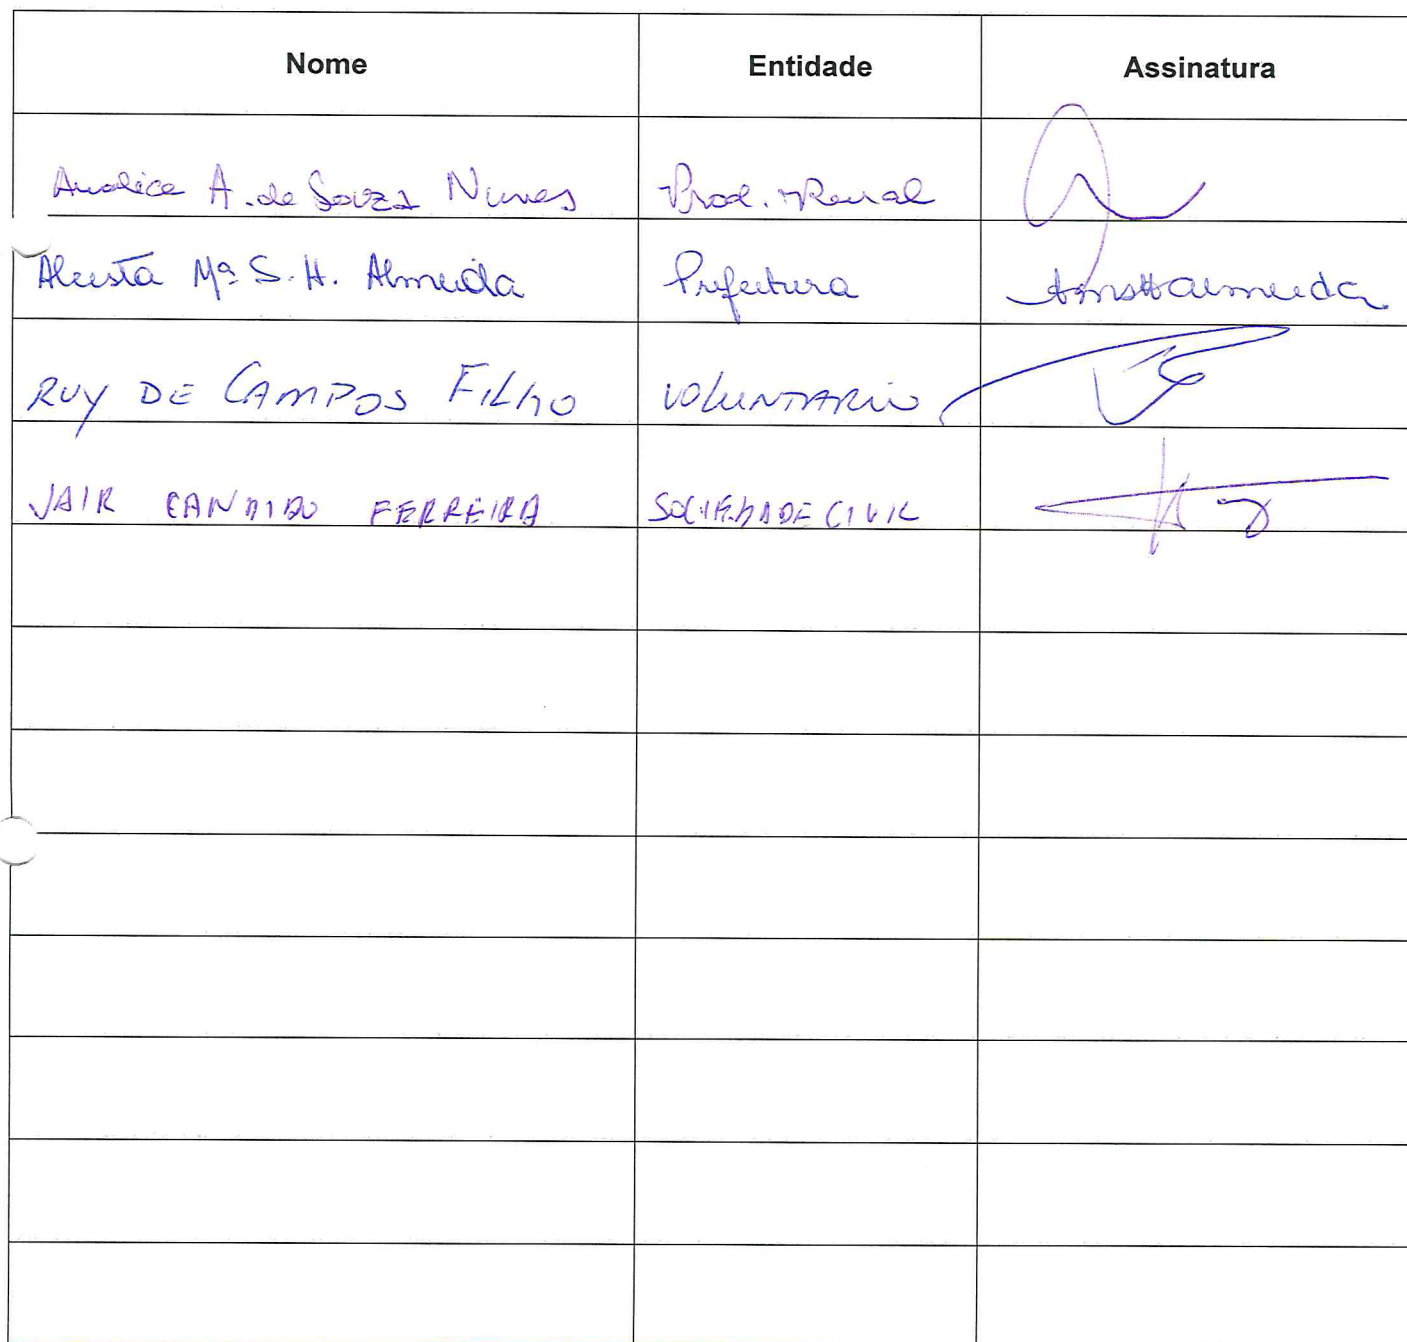 Nome Entidade Assinatura
Analice A. de Souza Nunes Prod. Rural
Mª S. H. Almeida Prefeitura
RUY DE CAMPOS FILHO VOLUNTARIO
JAIR CANDIDO FERREIRA SOCIEDADE CIVIL